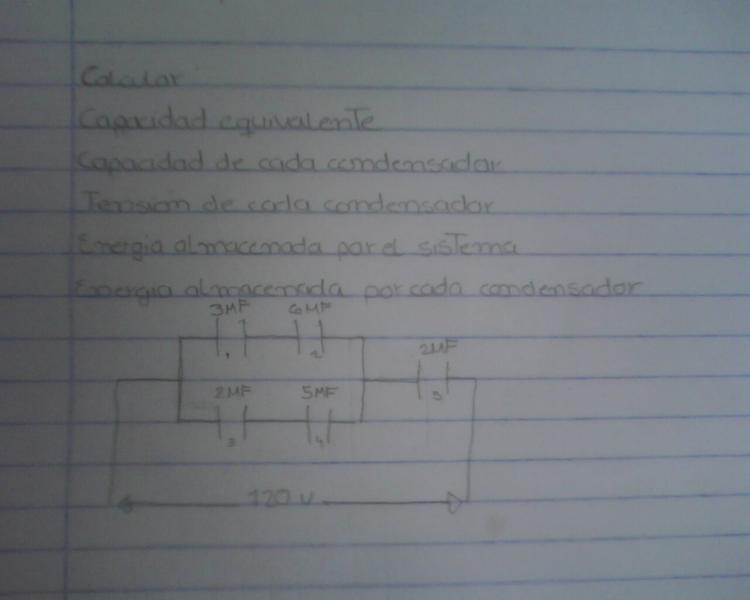 Calcular
Capacidad equivalente
Capacidad de cada condensador
Tension de cada condensador
Energia almacenada por el sistema
Energia almacenada por cada condensador
3MF 6MF
1 2
2MF
5
2MF 5MF
3 4
120 V